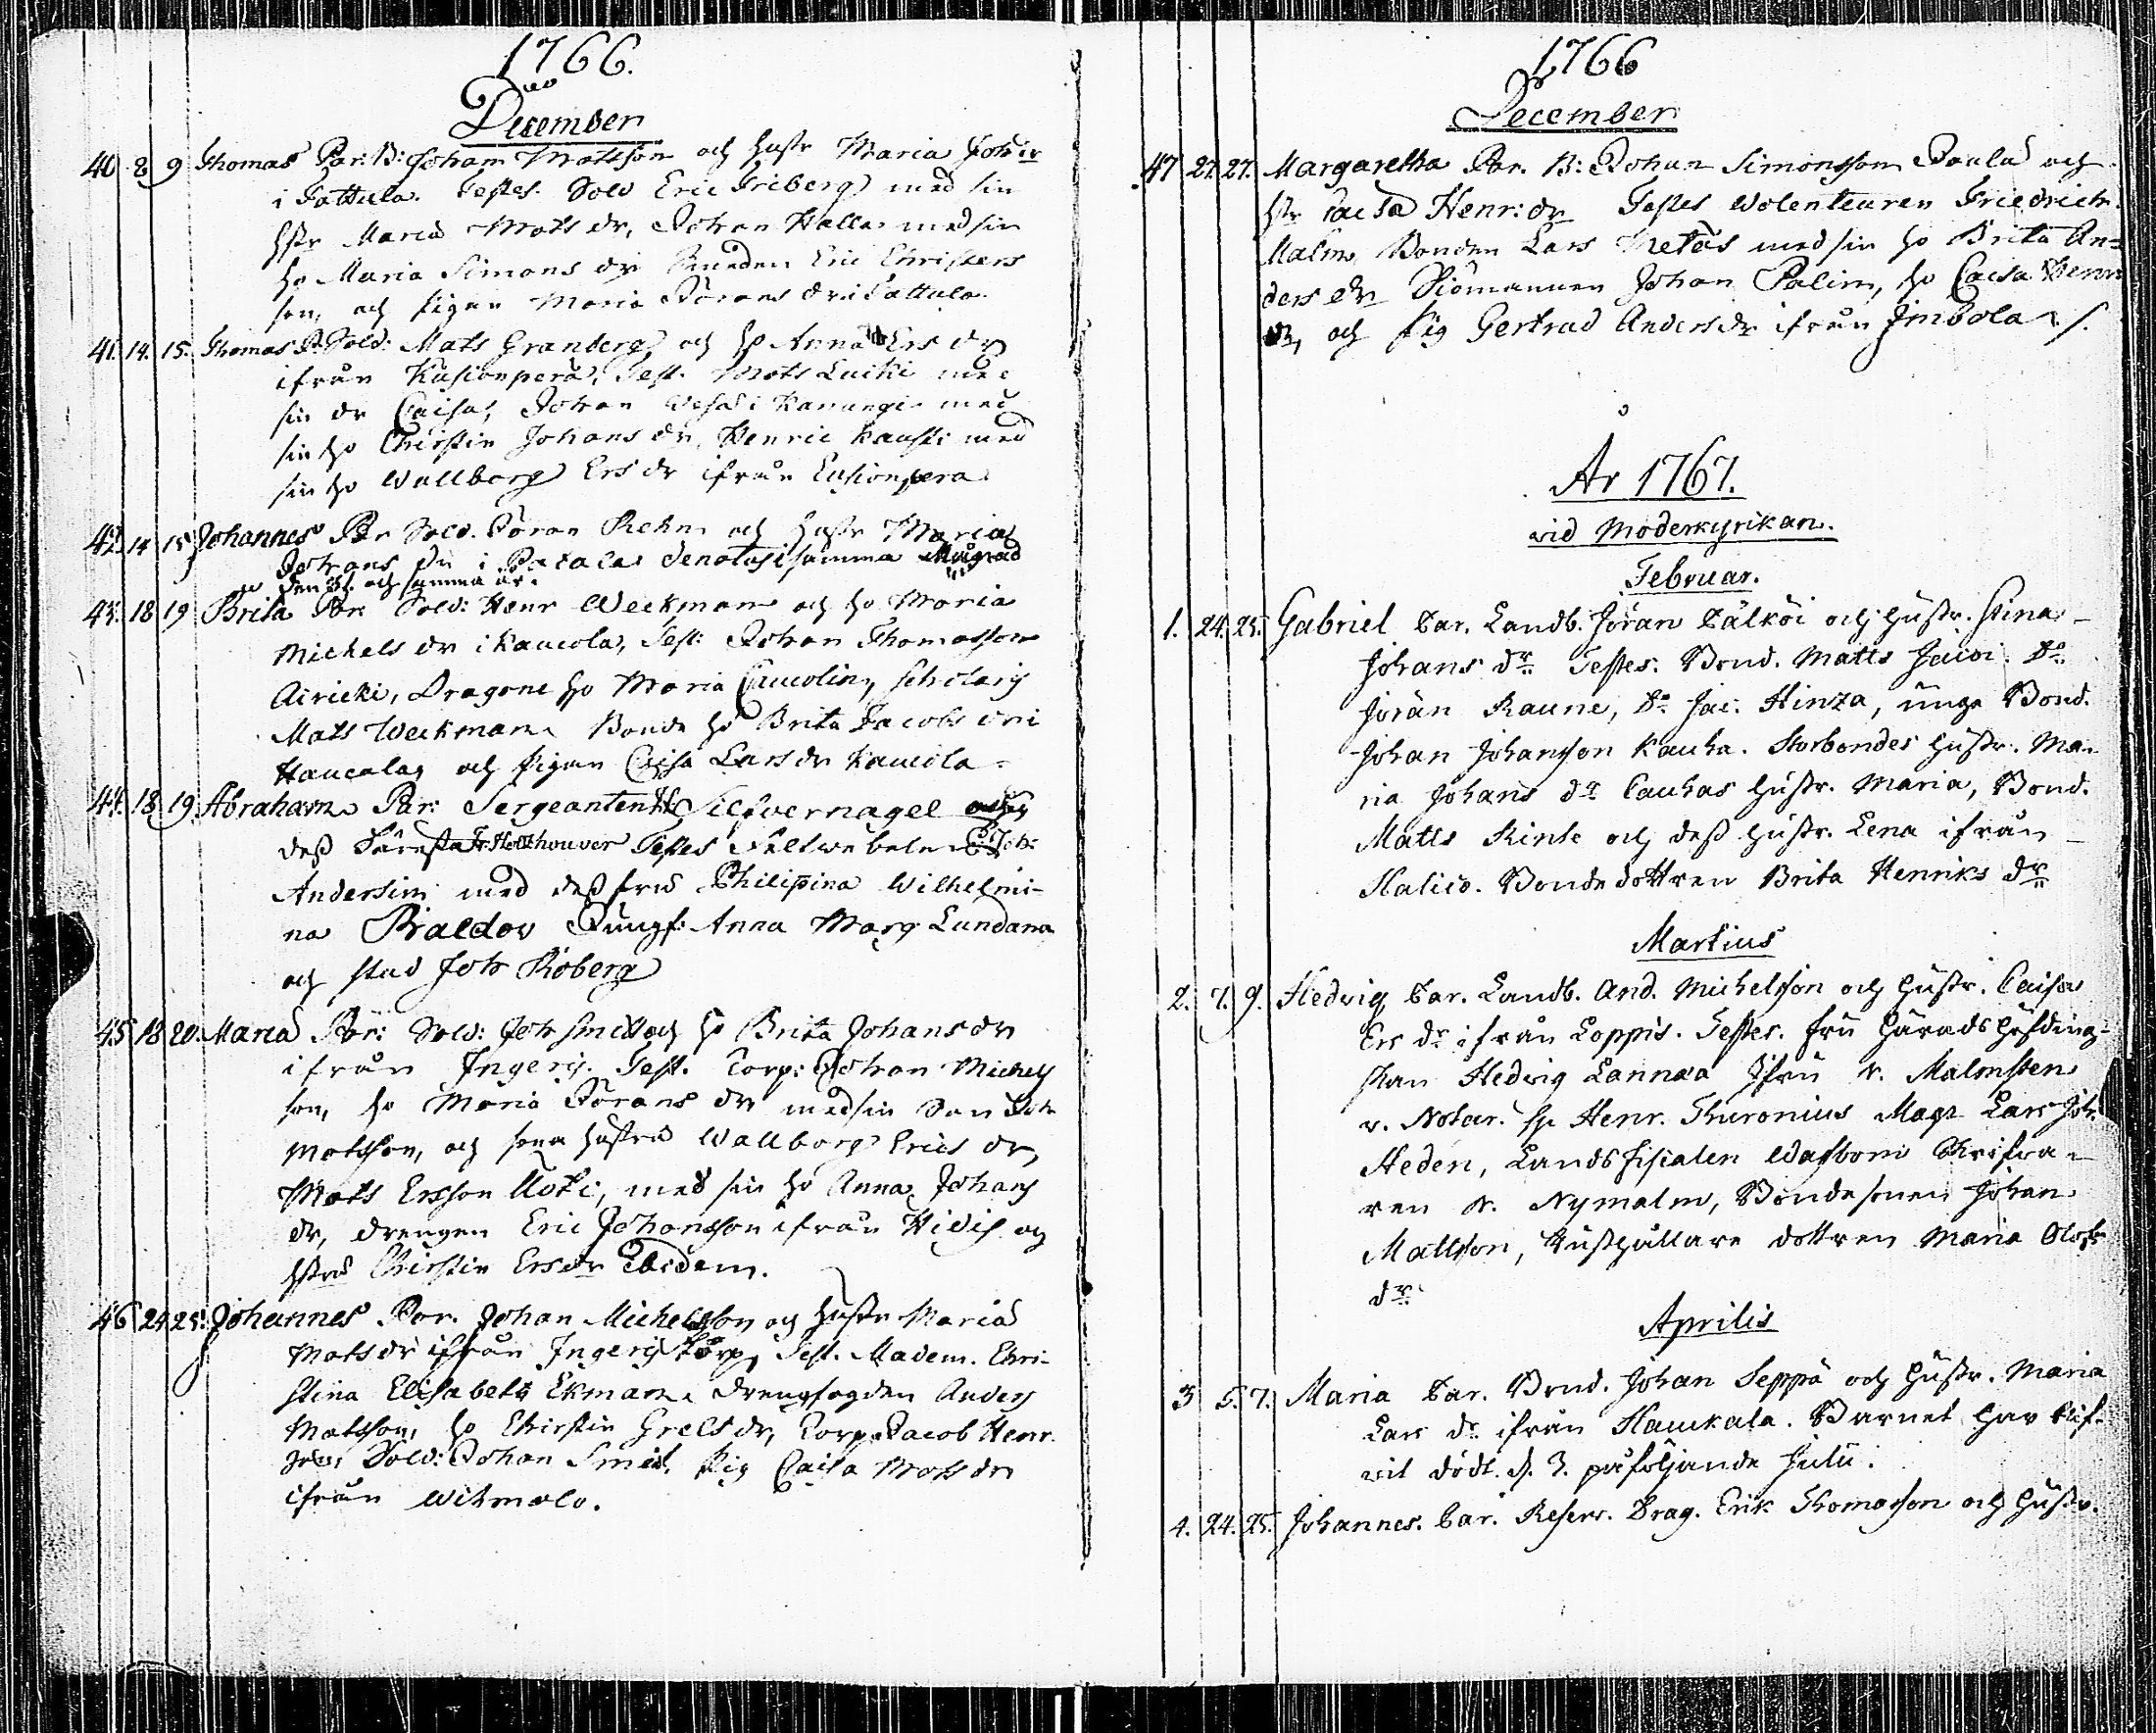 1766.
December
40. 8 9 Thomas Par. B: Johan Mattsson och hustr Maria Johsdr
i Pattula. Testes. Sold Eric Friberg med sin
hstr Maria Mats dr, Johan Halla med sin
ho Maria Simons dr Bonden Eric Christers
son, och pigan Maria Jörans dr i Pattula.
41. 14. 15. Thomas P. Sold: Mats Granberg, och ho Anna Ers dr
ifrån Kusionperä, Test. Mats Luiki med
sin dr Caisa, Johan i Kanungi med
sin ho Christin Johans dr, Henric Kauski med
sin ho Wallborg Ers dr ifrån Cusionpera
42. 14 15 Johannes Par Sold. Jöran Rehn och hustr Maria
Johans dr i denatus i samma Månad
den 31. och samma år.
43. 18 19 Brita Par Sold: Henr Weckman och ho Maria
Michels dr i Kaucola, Test: Johan Thomasson
Airicki, Dragone ho Maria Caucolin, Scholaris
Mats Weckman, Bonde ho Brita Jacobs dr i
Haucala, och pigan Cajsa Lars dr Kaucola.
44. 18 19. Abraham Par: Sergeanten H: Silfvernagel och
dess Testes Feltwebelen C: Joh:
Andersin med dess fru Philippina Wilhelmi-
na Jungf: Anna Marg Lundana
och stud Joh Röberg
45 18 20. Maria Par: Sold: Joh Smitt och ho Brita Johans dr
ifrån Ingeris. Test. Corp: Johan Michels
son, ho Maria Jörans dr med sin Son Joh
Matsson, och hustru Wallborg Erics dr,
Mats Ersson Uoti, med sin ho Anna Johans
dr, drengen Eric Johansson ifrån Hidis och
hstru Christin Ersdr Ibidem.
46 24 25. Johannes Par. Johan Michelsson och hustr Maria
Mats dr ifrån Ingeris Torp, Test. Madem. Chri-
stina Elisabeth Ekman, drengfogden Anders
Matsson, ho Christin Grels dr, Corp. Jacob Henr.
Sold: Johan Smitt, pig Caisa Mats dr
ifrån Wihmalo.
1766
December
47 27. 27. Margaretha Par. B: Johan Simonsson Paula och
hstr Caisa Henr: dr Testes Wolenteuren Friedrich
Malm, Bonden Lars med sin ho Brita An-
ders dr Siömannen Johan Palin, ho Caisa Henr
dr, och pig Gertrud Anders dr ifrån Imbola.
År 1767.
vid Moderkyrikan.
Februar.
1. 24. 25. Gabriel Par. Landb. Jöran Pälköi och hustr. Stina
Johans dr. Testes. Bond. Matts Do
Jöran Raune, Do Jac. Hinza, unge Bond.
Johan Johansson Kauha. Storbondes hustr. Ma-
ria Johans dr Cauhas hustr. Maria, Bond.
Matts Kinte och dess hustr. Lena ifrån
Halico. Bondedottren Brita Henriks dr
Martius
2. 7. 9. Hedvig Par. Landb. And. Michelsson och hustr. Caisa
Ers dr ifrån Loppis. Testes. fru häradshöfding-
skan Hedvig Lannæa Jfru r. Malmsten
v. Notar. hr Henr. Thuronius Mag. Lars Joh.
Heden, Landsfiscalen Wasbom Skrifva-
ren r. Nymalm, Bondesonen Johan
Mattsson, Rusthållare dottren Maria Olofs
dr.
Aprilis
3 5. 7. Maria Par. Bond. Johan Seppä och hustr. Maria
Lars dr ifrån Haukala. Barnet har blif-
vit dödt. d. 3. påföljande Julii.
4. 24. 25. Johannes. Par. Reserv. Drag. Erik Thomasson och hustr.